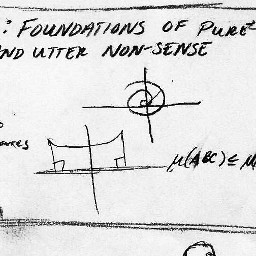 : FOUNDATIONS OF PURE
AND UTTER NON-SENSE
μ(ABC) ≤ μ